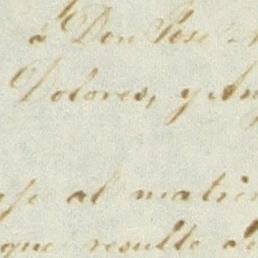 a Don José
Dolores, y An
al matrim
que resulte de